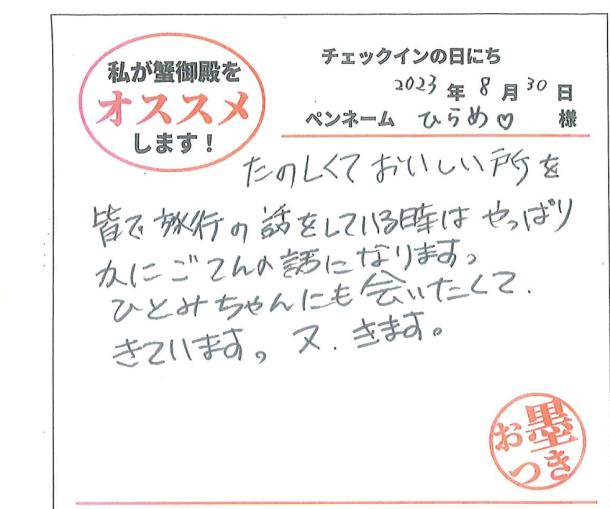 私が蟹御殿を
オススメ
します!
チェックインの日にち
2023年8月30日
ペンネーム ひらめ♡ 様
たのしくておいしい所を
皆で旅行の話をしている時は やっぱり
カニごてんの話になります。
ひとみちゃんにも会いたくて.
きています。又.きます。
お墨つき